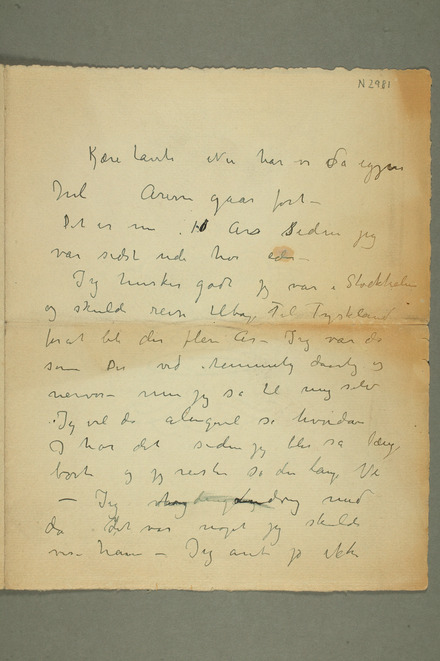 N 2981
Kjære Tante Nu har vi da igjen
Jul Arene gaar fort –
Det er nu 10 Ars siden jeg
var sidst ude hos eder –
Jeg husker godt jeg var i Stockholm
og skulde reise tilbag til Tyskland
for at bli der flere Ar – Jeg var da
som De ved temmelig daarlig og
nervøs – men jeg sa til mig selv
Jeg vil da alligevel se hvordan
J har det siden jeg blir så læng
borte og jeg reiste så den lange Vei
– Jeg drog med
da det var noget jeg skulde
vise ham – Jeg ikke